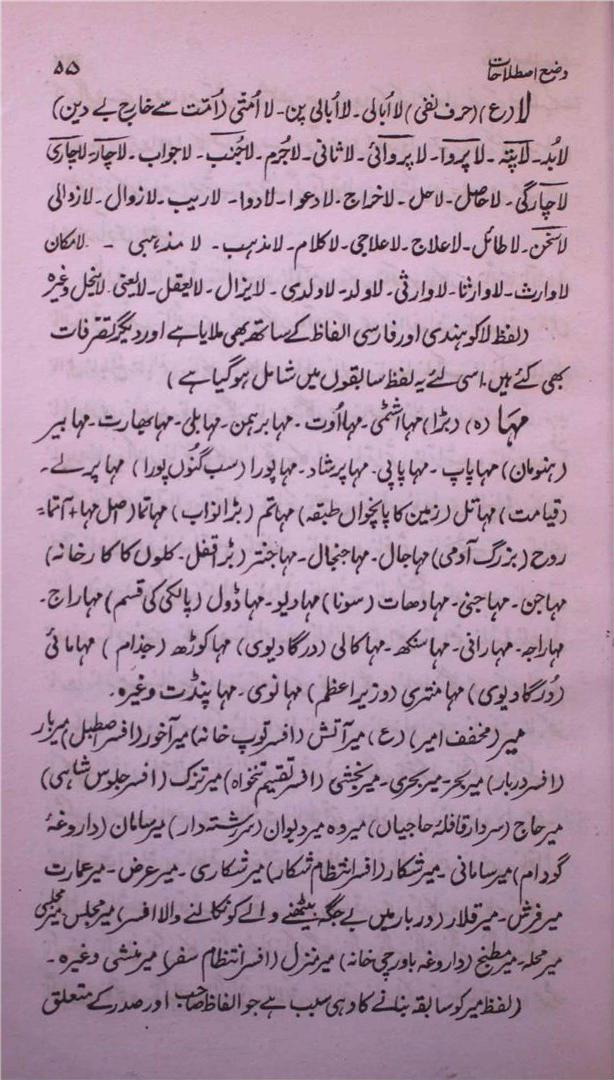 وضع اصطلاحات ۵۵
لا (ع) (حرف نفی) لا اُبالی۔ لا اُبالی پن۔ لا اُمتی (اُمت سے خارج بے دین)
لابُد۔ لاپتہ۔ لاپروا۔ لاپروائی۔ لاثانی۔ لاجُرم۔ لاجُنب۔ لاجواب۔ لاچار۔ لاچاری
لاچارگی۔ لاحاصل۔ لاحل۔ لاخراج۔ لادعوا۔ لادوا۔ لاریب۔ لازوال۔ لازوالی
لاسخن۔ لاطائل۔ لاعلاج۔ لاعلاجی۔ لاکلام۔ لامذہب۔ لامذہبی۔ لامکان
لاوارث۔ لاوارثا۔ لاوارثی۔ لاولد۔ لاولدی۔ لایزال۔ لایعقل۔ لایعنی۔ لاینحل وغیرہ
(لفظ لا کو ہندی اور فارسی الفاظ کے ساتھ بھی ملایا ہے اور دیگر تصرفات
بھی کئے ہیں۔ اسی لئے یہ لفظ سابقوں میں شامل ہوگیا ہے)
مہا (ہ) (بڑا) مہااشٹمی۔ مہااُوت۔ مہابرہمن۔ مہابلی۔ مہابھارت۔ مہابیر
(ہنومان) مہاپاپ۔ مہاپاپی۔ مہاپرشاد۔ مہاپورا (سب گنوں پورا) مہاپرلے۔
(قیامت) مہاتل (زمین کا پانچواں طبقہ) مہاتم (بڑا ثواب) مہاتما (اصل مہا + آتما =
روح (بزرگ آدمی) مہاجال۔ مہاجنجال۔ مہاجنتر (بڑ قفل۔ کلوں کا کارخانہ)
مہاجن۔ مہاجنی۔ مہادھات (سونا) مہادیو۔ مہاڈول (پالکی کی قسم) مہاراج۔
مہاراجہ۔ مہارانی۔ مہاسنکھ۔ مہاکالی (درگادیوی) مہاکوڑھ (جذام) مہامائی
(دُرگادیوی) مہامنتری (وزیراعظم) مہانومی۔ مہاپنڈت وغیرہ۔
میر (مخفف امیر) (ع) میرآتش (افسر توپ خانہ) میرآخور (افسر اصطبل) میربار
(افسردربار) میربحر۔ میربحری۔ میربخشی (افسر تقسیم تنخواہ) میرتزک (افسرجلوس شاہی)
میرحاج (سردار قافلۂ حاجیاں) میردہ میردیوان (سررشتہ دار) میرسامان (داروغۂ
گودام) میرسامانی۔ میرشکار (افسر انتظام شکار) میرشکاری۔ میرعرض۔ میرعمارت
میرفرش۔ میرقلار (دربار میں بے جگہ بیٹھنے والے کو نکالنے والا افسر) میرمجلس۔ میرمجلسی
میرمحلہ۔ میرمطبخ (داروغہ باورچی خانہ) میرمنزل (افسر انتظام سفر) میرمنشی وغیرہ۔
(لفظ میر کو سابقہ بنانے کا وہی سبب ہے جو الفاظ صاحب اور صدر کے متعلق